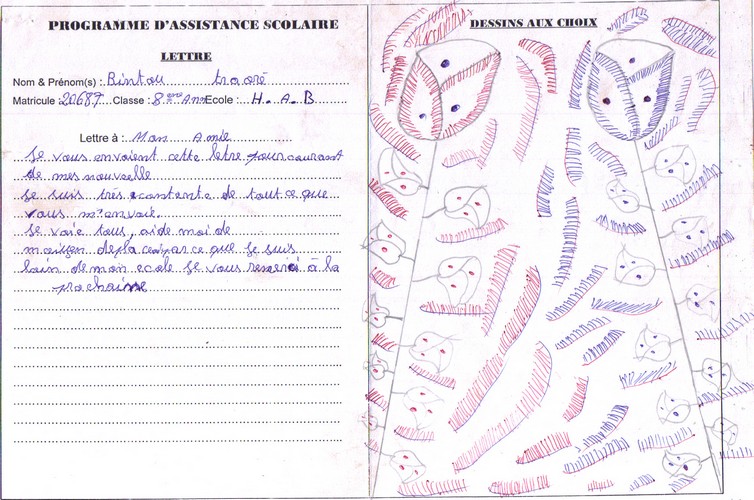 PROGRAMME D'ASSISTANCE SCOLAIRE
LETTRE
Nom & Prénom(s) : Bintou traoré
Matricule : 20687 Classe : 8ème Ann Ecole : H. A. B
Lettre à : Mon Amie
Je vous envoient cette letre pour courant
de mes nouvelle
Je suis très contente de tout ce que
vous m'envoie.
Je voie tous, aide moi de
depla par ce que Je suis
loin de mon ecole Je vous à la
prochaine
DESSINS AUX CHOIX